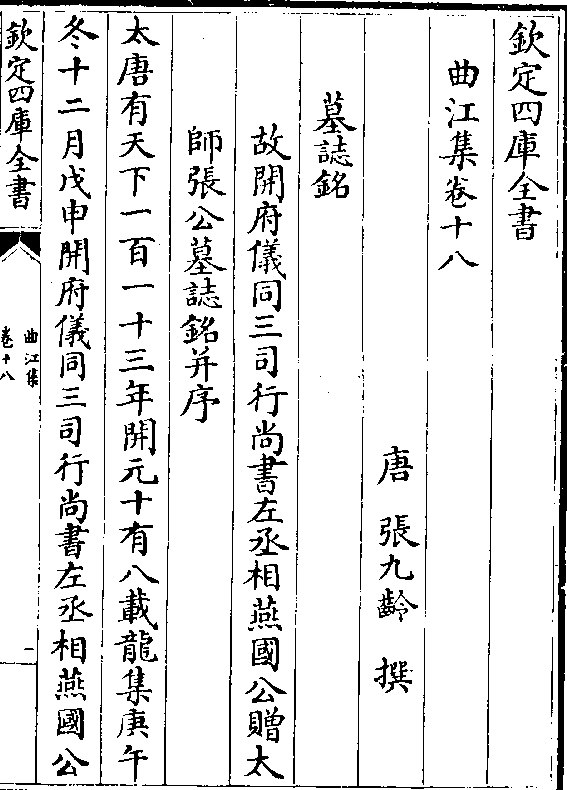 欽定四庫全書
曲江集卷十八
唐 張九齡 撰
墓誌銘
故開府儀同三司行尚書左丞相燕國公贈太
師張公墓誌銘并序
太唐有天下一百一十三年開元十有八載龍集庚午
冬十二月戊申開府儀同三司行尚書左丞相燕國公
欽定四庫全書
曲江集
卷十八
一